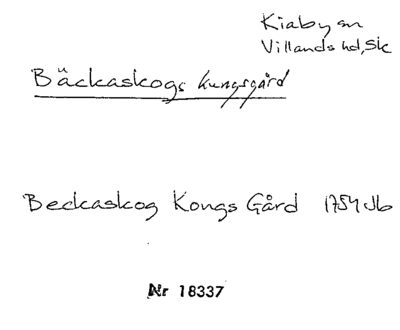 Kiaby sn
Villands hd, Sk
Bäckaskogs kungsgård
Beckaskog Kongs Gård 1754 Jb
Nr 18337